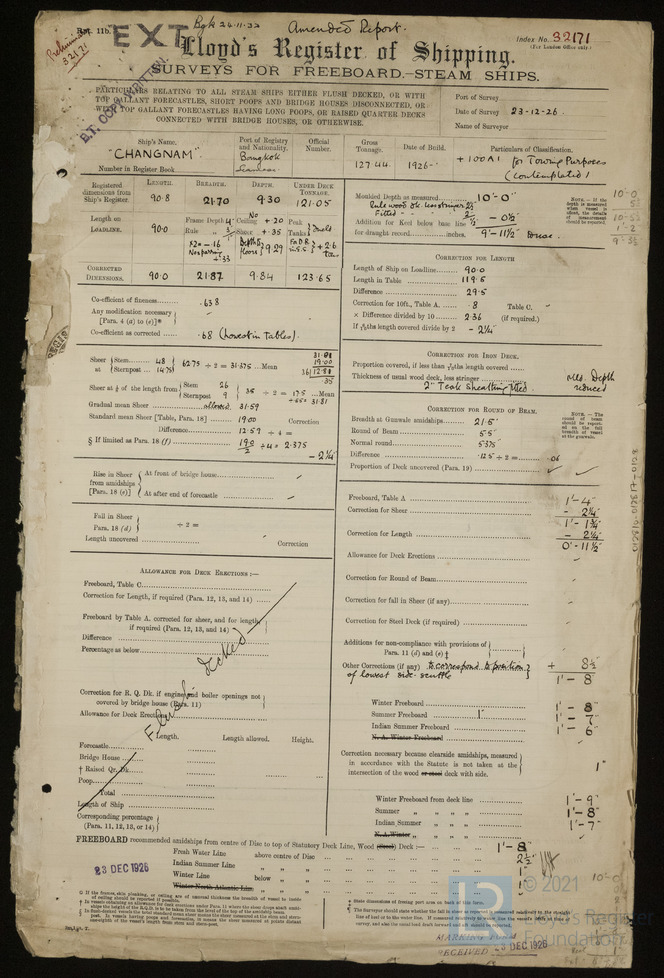 Rpt. 11b.
Bgk 24.11.33
Amended Report.
Index No. 32171
(For London Office only.)
32171
EXT
Lloyd's Register of Shipping.
SURVEYS FOR FREEBOARD.—STEAM SHIPS.
PARTICULARS RELATING TO ALL STEAM SHIPS EITHER FLUSH DECKED, OR WITH
TOP GALLANT FORECASTLES, SHORT POOPS AND BRIDGE HOUSES DISCONNECTED, OR
WITH TOP GALLANT FORECASTLES HAVING LONG POOPS, OR RAISED QUARTER DECKS
CONNECTED WITH BRIDGE HOUSES, OR OTHERWISE.
Port of Survey
Date of Survey 23-12-26.
Name of Surveyor
Ship's Name.
"CHANGNAM"
Number in Register Book
Port of Registry and Nationality.
Bangkok
Siamese
Official Number.
Gross Tonnage.
127.44
Date of Build.
1926
Particulars of Classification.
+100A1 for Towing Purposes
(Contemplated)
Registered dimensions from Ship's Register.
LENGTH. 90.8
BREADTH. 21.70
DEPTH. 9.30
UNDER DECK TONNAGE. 121.05
Length on LOADLINE. 90.0
Frame Depth 4"
Rule 3"
No Ceiling + .20
Sheer + .35
Peak Tanks
9.29
+ 2.6 tons
CORRECTED DIMENSIONS. 90.0 21.87 9.84 123.65
Co-efficient of fineness .638
Any modification necessary
[Para. 4 (a) to (e)]*
Co-efficient as corrected .68 (lowest in tables).
Sheer at Stem 48
Sternpost 14.75
62.75 ÷ 2 = 31.375 Mean
31.81
19.00
12.81
Sheer at ⅛ of the length from Stem 26
Sternpost 9
35 ÷ 2 = 17.5 Mean
31.81
Gradual mean Sheer allowed 31.59
Standard mean Sheer [Table, Para. 18] 19.00
Correction
Difference 12.59 ÷ 4 =
§ If limited as Para. 18 (f) 19.0/2 ÷ 4 = 2.375
- 2¼"
Rise in Sheer from amidships [Para. 18 (e)]
At front of bridge house
At after end of forecastle
Fall in Sheer
Para. 18 (d) ÷ 2 =
Length uncovered
Correction
ALLOWANCE FOR DECK ERECTIONS:—
Freeboard, Table C.
Correction for Length, if required (Para. 12, 13, and 14)
Freeboard by Table A. corrected for sheer, and for length,
if required (Para. 12, 13, and 14)
Difference
Percentage as below
Flush decked
Correction for R. Q. Dk. if engine and boiler openings not
covered by bridge house (Para. 11)
Allowance for Deck Erections
Length. Length allowed. Height.
Forecastle
Bridge House
† Raised Qr. Dk.
Poop
Total
Length of Ship
Corresponding percentage
(Para. 11, 12, 13, or 14)
Moulded Depth as measured 10'-0"
- 0½"
Addition for Keel below base line
for draught record inches. 9'-11½"
NOTE.—If the depth is measured when vessel is afloat, the details of measurement should be reported.
CORRECTION FOR LENGTH
Length of Ship on Loadline 90.0
Length in Table 119.5
Difference 29.5
Correction for 10ft., Table A. .8 Table C.
× Difference divided by 10 2.36 (if required.)
If 6/10ths length covered divide by 2 - 2¼"
CORRECTION FOR IRON DECK.
Proportion covered, if less than 7/10ths length covered
Thickness of usual wood deck, less stringer
2" Teak Sheathing fitted.
Mld. Depth reduced
CORRECTION FOR ROUND OF BEAM.
Breadth at Gunwale amidships 21.5'
Round of Beam 5.5
Normal round 5.375
Difference .125 ÷ 2 = .06
Proportion of Deck uncovered (Para. 19)
NOTE.—The round of beam should be reported on the full breadth of vessel at the gunwale.
Freeboard, Table A 1'-4"
Correction for Sheer - 2¼"
1'-1¾"
Correction for Length - 2¼"
0'-11½"
Allowance for Deck Erections
Correction for Round of Beam
Correction for fall in Sheer (if any)
Correction for Steel Deck (if required)
Additions for non-compliance with provisions of
Para. 11 (d) and (e) ‡
Other Corrections (if any) to correspond to position
of lowest side-scuttle + 8½"
1'-8
Winter Freeboard 1'-8"
Summer Freeboard 1" 1'-7"
Indian Summer Freeboard 1'-6"
N. A. Winter Freeboard
Correction necessary because clearside amidships, measured
in accordance with the Statute is not taken at the
intersection of the wood or steel deck with side. 1"
Winter Freeboard from deck line 1'-9"
Summer " " " 1'-8"
Indian Summer " " " 1'-7"
N.A. Winter " " "
FREEBOARD recommended amidships from centre of Disc to top of Statutory Deck Line, Wood (Steel) Deck:— 1'-8"
Fresh Water Line above centre of Disc 2½"
Indian Summer Line " " " 1"
Winter Line below " " 1"
Winter North Atlantic Line " " "
23 DEC 1926
MARKING FORM
RECEIVED 28 DEC 1926
012810-012817-0128
LR
© 2021
Lloyd's Register
Foundation